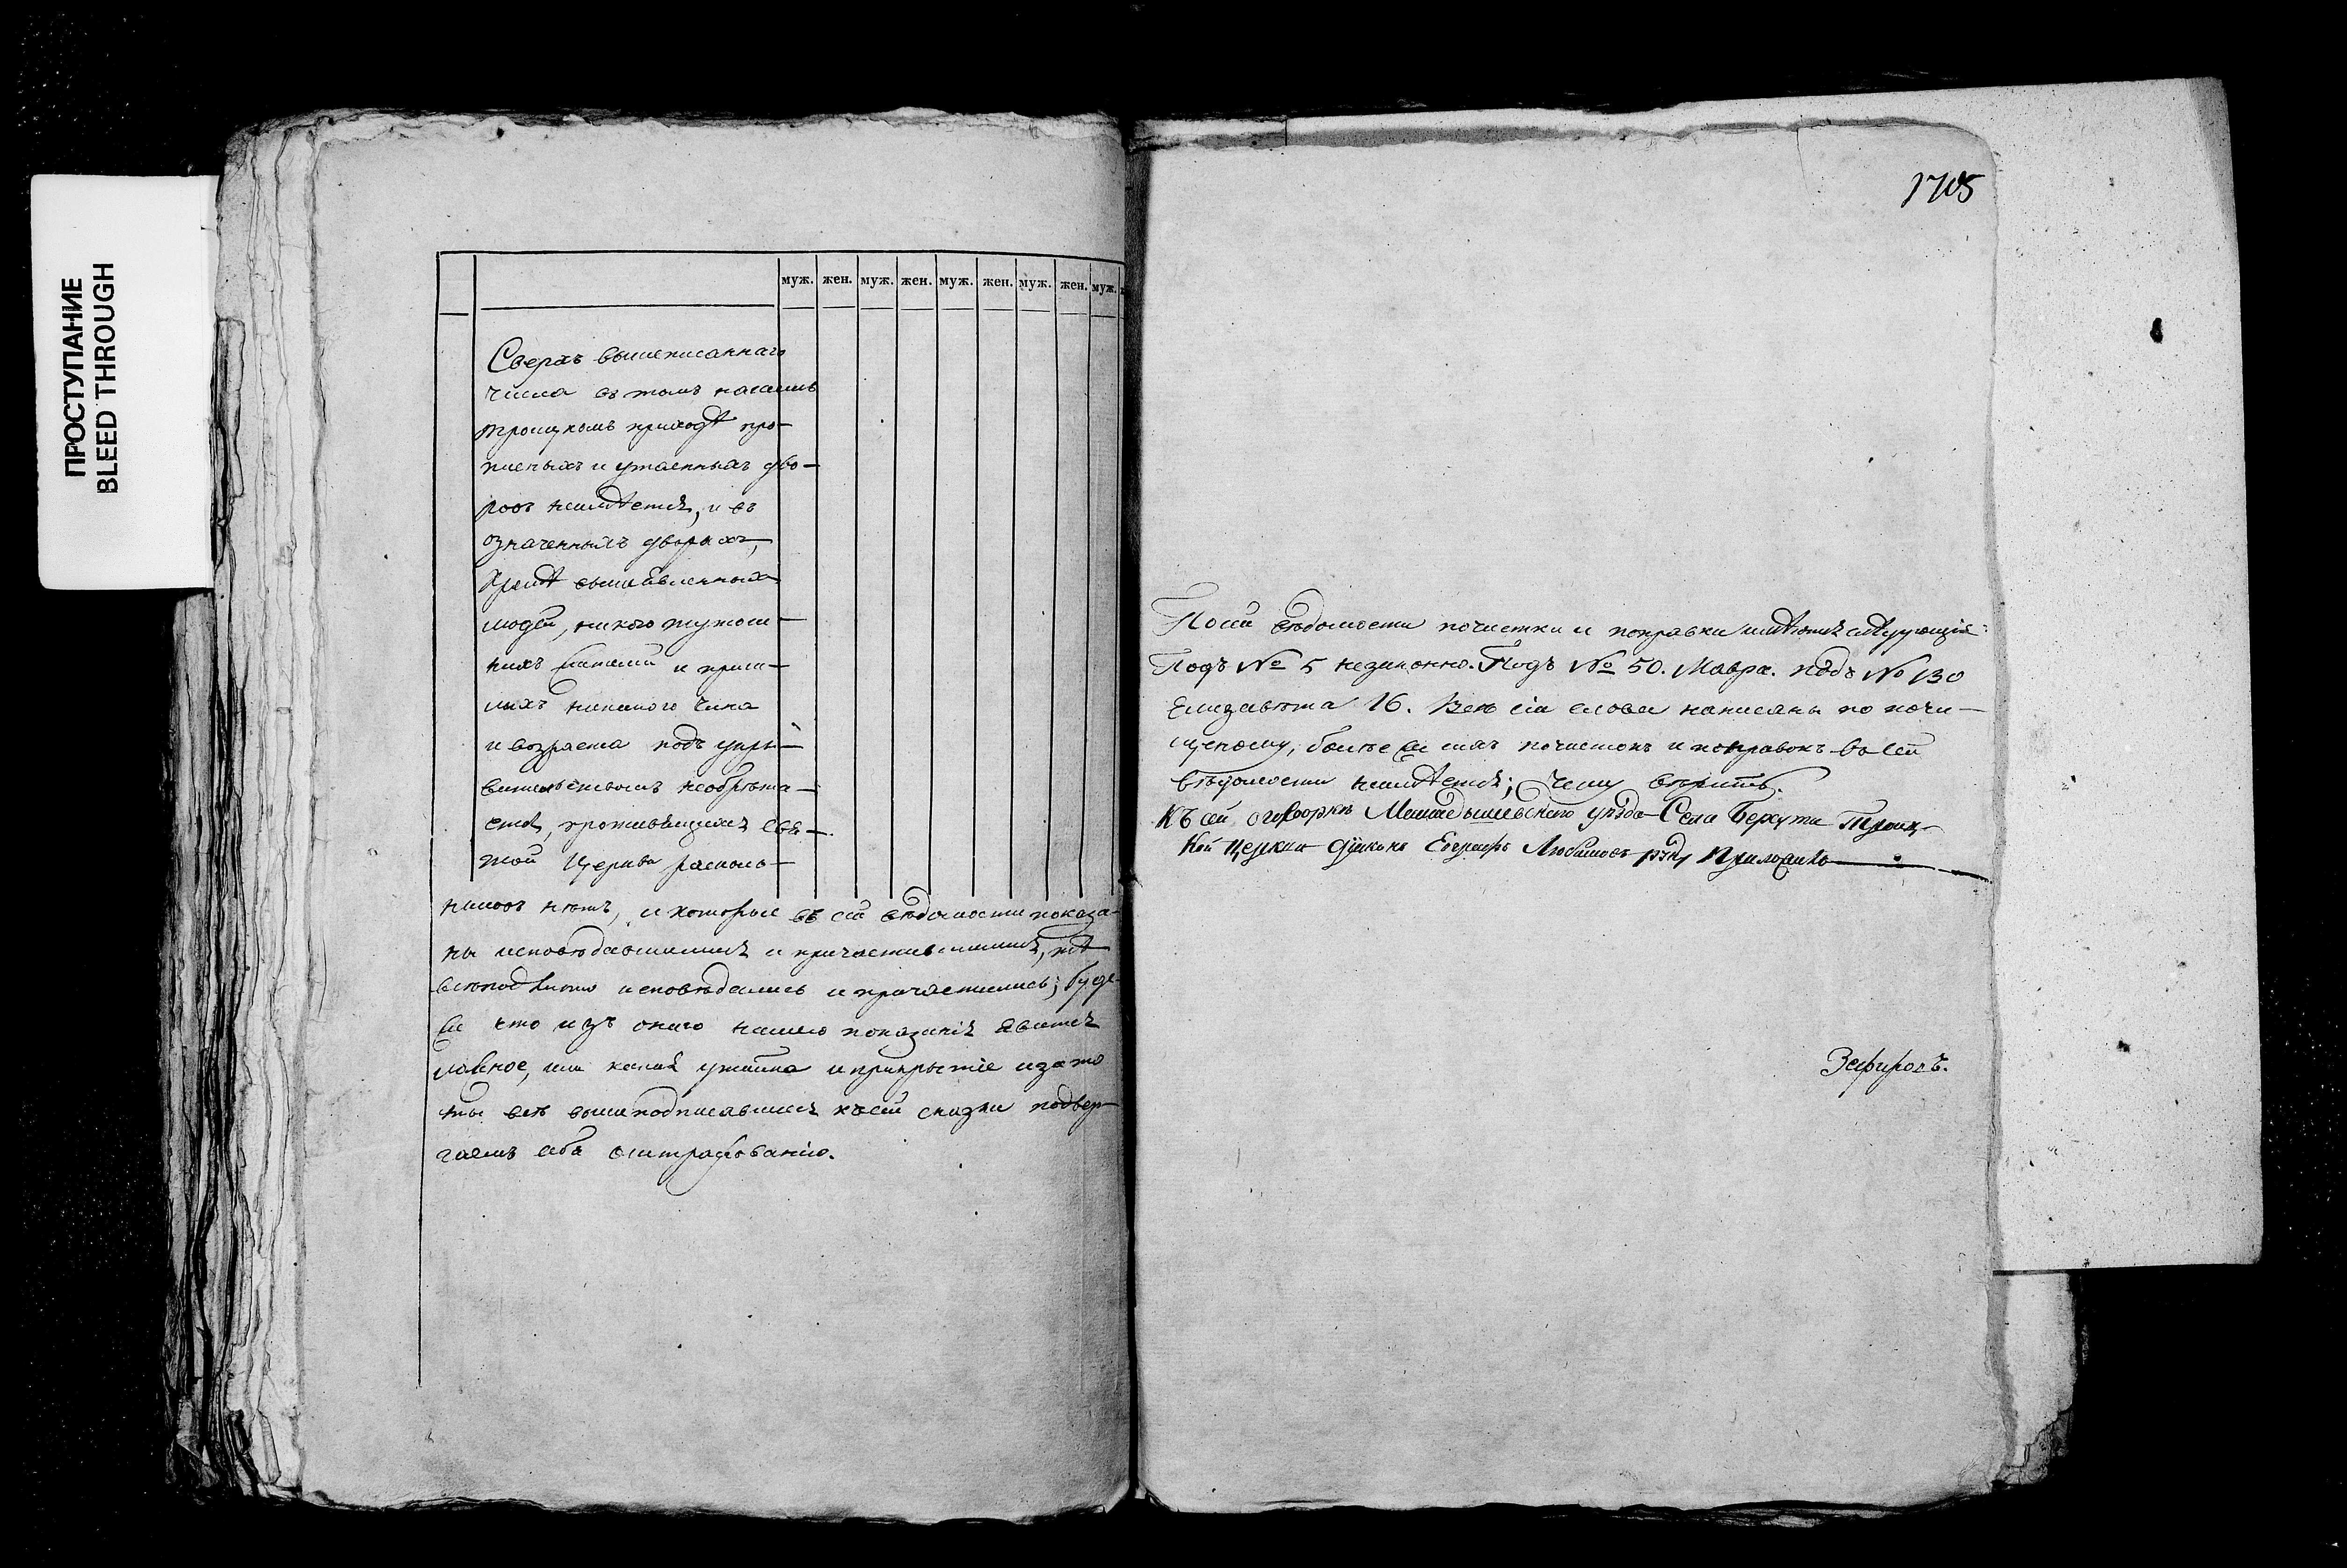 ПРОСТУПАНИЕ
BLEED THROUGH
муж. жен. муж. жен. муж. жен. муж. жен. муж.
Сверхъ вышеписаннаго
числа въ томъ нашемъ
Троицкомъ приходѣ про-
писныхъ и утаенныхъ дво-
ровъ неимѣется, и въ
означенныхъ дворахъ,
кромѣ вышеявленныхъ
людей, никого тутош-
нихъ жителей и приш-
лыхъ никакого чина
и возраста подъ укры-
вательствомъ необрѣта-
ется, противящихся свя-
той Церкви расколь-
никовъ нѣтъ, и которые въ сей вѣдомости показа-
ны исповѣдавшимися и причастившимися, тѣ
исповѣдались и причастились; буде
же что изъ онаго нашего показанія явится
ложное, или какая утайка и прикрытіе и за то
мы всѣ вышеподписавшіеся къ сей сказки подвер-
гаемъ себя оштрафованію.
1705
По сей вѣдомости почистки и поправки имѣются слѣдующія:
Подъ № 5 незаконно. Подъ № 50. Мавра. подъ № 130
Елизавета 16. Всѣ сіи слова написаны по почи-
щеному, болѣе же сихъ почистокъ и поправокъ во сей
вѣдомости неимѣется; Чему вѣрить.
Къ сей оговоркѣ уѣзда Села Берхути Троиц-
кой Церкви Діаконъ Евграфъ Любимовъ руку Приложилъ
Зефировъ.